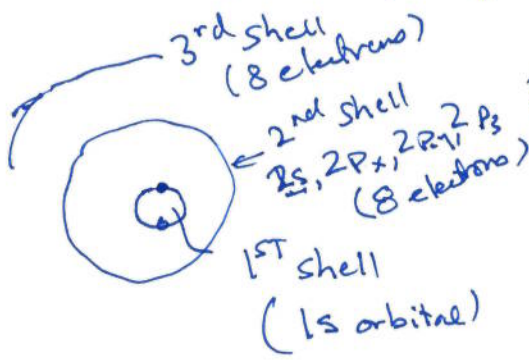 3rd shell
(8 electrons)
2nd shell
2s, 2Px, 2Py, 2Pz
(8 electrons)
1ST shell
(1s orbital)